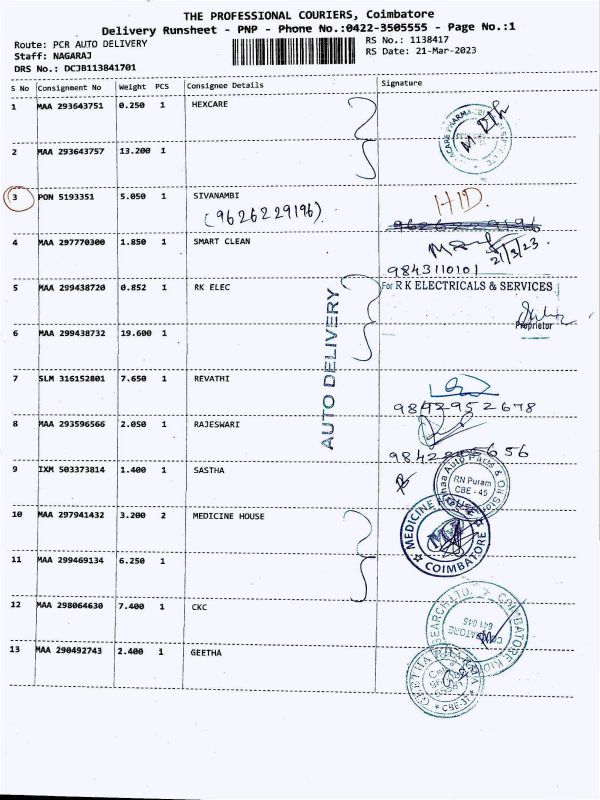 THE PROFESSIONAL COURIERS, Coimbatore
Delivery Runsheet - PNP - Phone No.:0422-3505555 - Page No.:1
Route: PCR AUTO DELIVERY
RS No.: 1138417
Staff: NAGARAJ
RS Date: 21-Mar-2023
DRS No.: DCJB113841701
S No Consignment No Weight PCS Consignee Details Signature
1 MAA 293643751 0.250 1 HEXCARE
2 MAA 293643757 13.200 1
3 PON 5193351 5.050 1 SIVANAMBI HID.
(9626229196) 9626229196
4 MAA 297770300 1.850 1 SMART CLEAN
21/3/23.
9843110101
5 MAA 299438720 0.852 1 RK ELEC For R K ELECTRICALS & SERVICES
Proprietor
6 MAA 299438732 19.600 1
AUTO DELIVERY
7 SLM 316152801 7.650 1 REVATHI
9842952678
8 MAA 293596566 2.050 1 RAJESWARI
9 IXM 503373814 1.400 1 SASTHA
RN Puram
CBE - 45
10 MAA 297941432 3.200 2 MEDICINE HOUSE
MEDICINE HOUSE
COIMBATORE
11 MAA 299469134 6.250 1
12 MAA 298064630 7.400 1 CKC
COIMBATORE KIDNEY
641 045
13 MAA 290492743 2.400 1 GEETHA
GEETHA
CBE-37